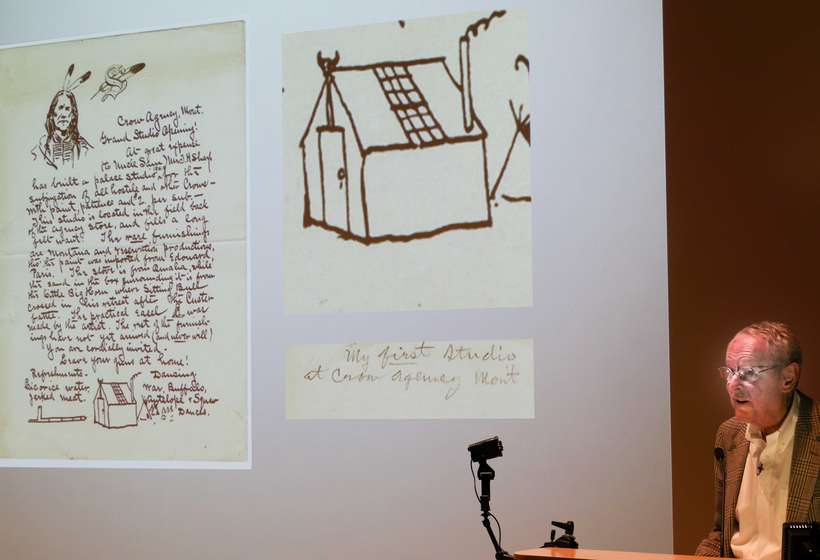 Crow Agency, Mont.
Grand Studio Opening!
At great expense
to Uncle Sam, Mr. J. H. Sharp
has built a palace studio for the
subjugation of all hostile and other Crows—
with paint, patience and 2 per sub.—
This studio is located in the field back
of the agency store, and fills a long
felt want. The ware furnishings
are Montana and reservation productions,
tho' his paint was imported from Edouard,
Paris. The stove is from Omaha, while
the sand in the box surrounding it is from
the Little Big Horn where Sitting Bull
crossed in his retreat after the Custer
battle. The practical Easel was
made by the artist. The rest of the furnish-
ings have not yet arrived (and never will)
You are cordially invited.
Leave your guns at home!
Refreshments.
Licorice water,
jerked meat.
Dancing
War, Buffalo,
Antelope & Squaw
Dances.
My first Studio
at Crow Agency Mont